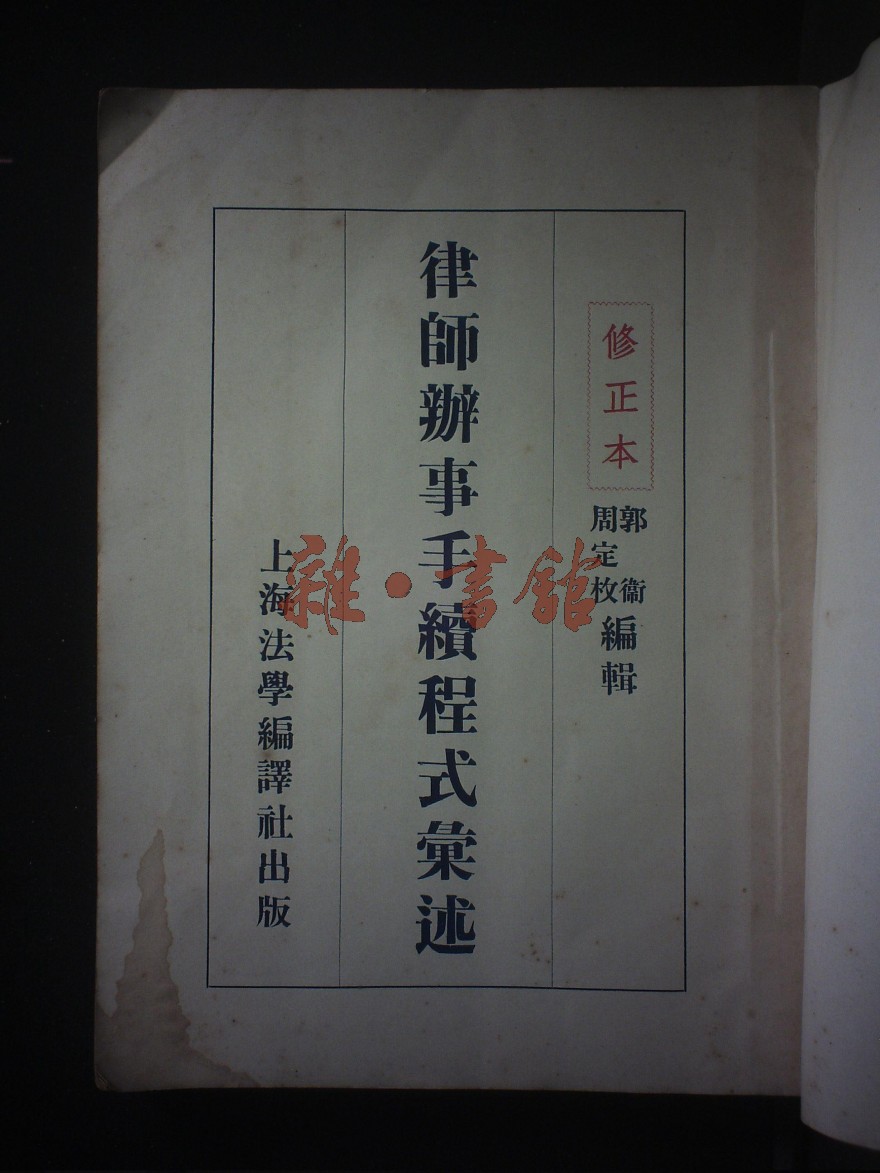 修正本
郭衞
周定枚
編輯
律師辦事手續程式彙述
上海法學編譯社出版
雜·書館